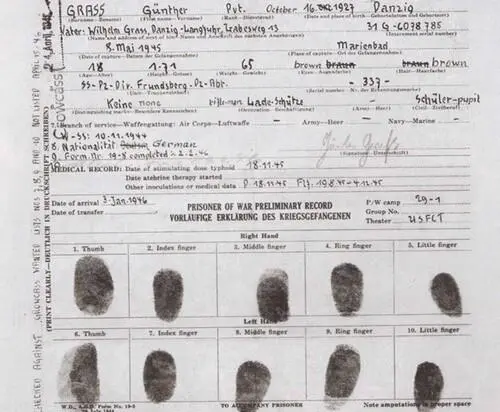 GRASS Günther Pvt. October 16. 1927 Danzig
(Surname—Beiname) (First name—Vorname) (Rank—Dienstgrad) (Date and place of birth—Geburtsdatum und Geburtsort)
Vater: Wilhelm Grass, Danzig-Langfuhr, Labesweg 13 31 G-6078785
(Name and address of next of kin Internment serial number
8. Mai 1945 Marienbad
(Date of capture—Datum der Gefangennahme) (Place of capture—Ort der Gefangennahme)
18 171 65 brown braun braun brown
(Age—Alter) (Height—Grösse) (Weight—Gewicht) (Eyes—Augenfarbe) (Hair—Haarfarbe)
SS-Pz-Dir. Frundsberg-Pz-Abr. - 337-
Keine none Lade-Schütze Schüler-pupil
7. Branch of service—Waffengattung: Air Corps—Luftwaffe — Army—Heer — Navy—Marine -
W-SS: 10.11.1944
8. Nationalität German
9. Form. Nr. 19-8 completed 2.2.46
(Signature—Unterschrift)
MEDICAL RECORD: Date of stimulating dose typhoid 18.11.45
Date atebrine therapy started
Other inoculations or medical data 18.11.45 19.8.45-4.12.45
Date of arrival 3. Jan. 1946
Date of transfer
PRISONER OF WAR PRELIMINARY RECORD
VORLÄUFIGE ERKLÄRUNG DES KRIEGSGEFANGENEN
P/W camp 29-1
Group No.
Theater USFET
Right Hand
1. Thumb 2. Index finger 3. Middle finger 4. Ring finger 5. Little finger
Left Hand
6. Thumb 7. Index finger 8. Middle finger 9. Ring finger 10. Little finger
W.D., A.G.O. Form No. 19-2
TO ACCOMPANY PRISONER
Note amputations in proper space
(PRINT CLEARLY—DEUTLICH IN DRUCKSCHRIFT SCHREIBEN)
CHECKED AGAINST CROWCASS WANTED LISTS NOS 7, 8, 9 AND 10 NOT LISTED